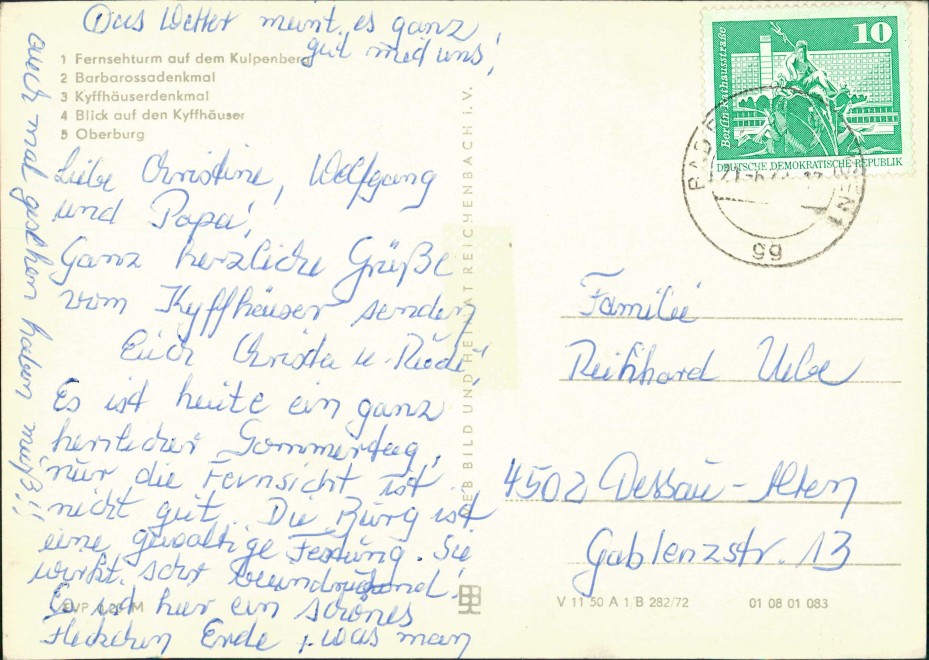 Das Wetter meint es ganz
gut mit uns!
1 Fernsehturm auf dem Kulpenberg
2 Barbarossadenkmal
3 Kyffhäuserdenkmal
4 Blick auf den Kyffhäuser
5 Oberburg
Liebe Christine, Wolfgang
und Papa,
Ganz herzliche Grüße
vom Kyffhäuser senden
Euch Christa u. Rudi,
Es ist heute ein ganz
herrlicher Sommertag,
nur die Fernsicht ist
nicht gut. Die Burg ist
eine gewaltige Festung. Sie
wirkt sehr beeindruckend!
Es ist hier ein schönes
Fleckchen Erde, was man
auch mal gesehen haben muß!!
EVP M
VEB BILD UND HEIMAT REICHENBACH i. V.
10
Berlin · Rathausstraße
DEUTSCHE DEMOKRATISCHE REPUBLIK
BAD
Familie
Reinhard Uebe
4502 Dessau-Alten
Gablenzstr. 13
V 11 50 A 1/B 282/72 01 08 01 083